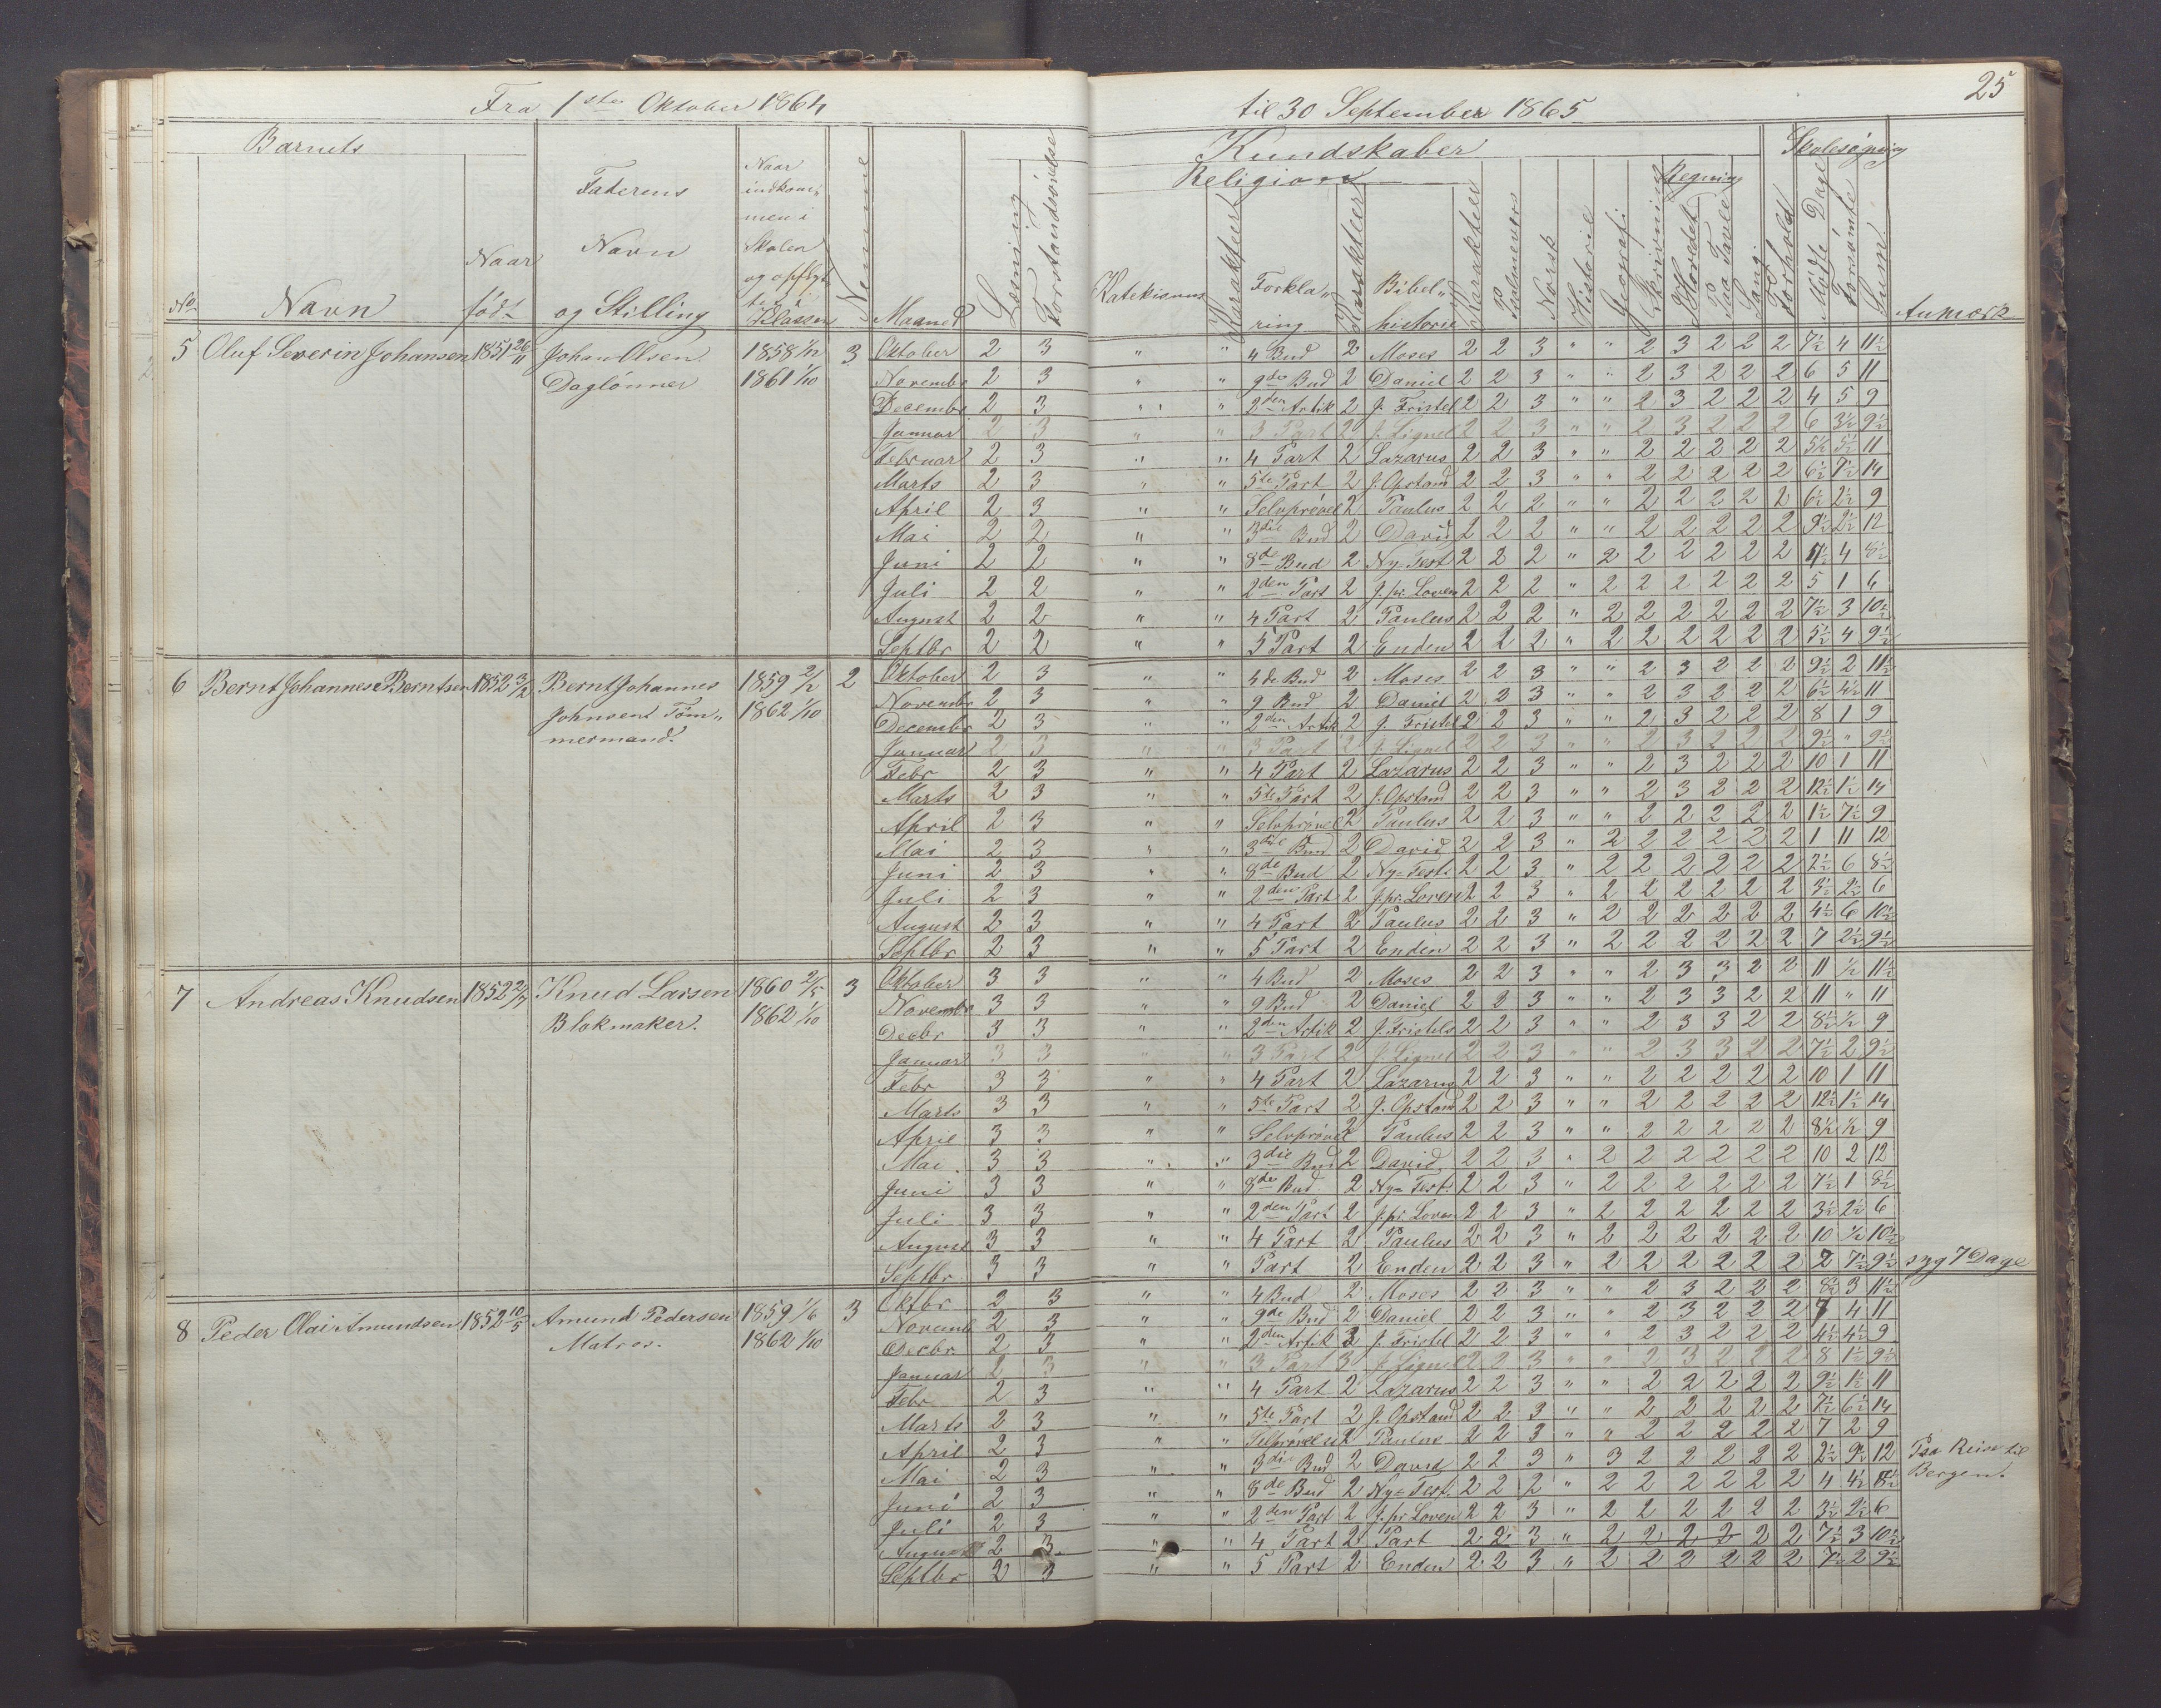 25
Fra 1ste Oktober 1864 til 30 September 1865
Barnets
Kundskaber
Skolesøgning
Religion
Regning
No
Navn
Naar født
Faderens Navn og Stilling
Naar indkommen i Skolen og opflyttet i Klassen
Nemmme
Maaned
Læsning
Forstandsøvelse
Katekismus
Karakteer
Forklaring
Karakteer
Bibelhistorie
Karakteer
Psalmevers
Norsk
Historie
Geografi
Skrivning
I Hovedet
Paa Tavle
Sang
Forhold
Mødte Dage
Forsømte
Sum
Anmærk
5 Oluf Severin Johansen 1851 26/11 Johan Olsen 1858 1/12 3 Oktober 2 3 " " 4 Bud 2 Moses 2 2 3 " " 2 3 2 2 2 7½ 4 11½
Daglønner 1861 1/10 Novembr 2 3 " " 9de Bud 2 Daniel 2 2 3 " " 2 3 2 2 2 6 5 11
Decembr 2 3 " " 2den Artik 2 J. Fristel 2 2 3 " " 2 3 2 2 2 4 5 9
Januar 2 3 " " 3 Part 2 J. Lignel 2 2 3 " " 2 3 2 2 2 6 3½ 9½
Februar 2 3 " " 4 Part 2 Lazarus 2 2 3 " " 2 2 2 2 2 5½ 5½ 11
Marts 2 3 " " 5te Part 2 J. Opstand 2 2 3 " " 2 2 2 2 2 6½ 7½ 14
April 2 3 " " Selvprøvel 2 Paulus 2 2 2 " " 2 2 2 2 2 6½ 2½ 9
Mai 2 2 " " 3die Bud 2 David 2 2 2 " " 2 2 2 2 2 9½ 2½ 12
Juni 2 2 " " 8de Bud 2 Ny-Test 2 2 2 " 2 2 2 2 2 2 4½ 4 8½
Juli 2 2 " " 2den Part 2 J. pr. Loven 2 2 2 " 2 2 2 2 2 2 5 1 6
August 2 2 " " 4 Part 2 Paulus 2 2 2 " 2 2 2 2 2 2 7½ 3 10½
Septbr 2 2 " " 5 Part 2 Enden 2 2 2 " 2 2 2 2 2 2 5½ 4 9½
6 Bernt Johannes Berntsen 1852 3/2 Bernt Johannes 1859 2/2 2 Oktober 2 3 " " 4de Bud 2 Moses 2 2 3 " " 2 3 2 2 2 9½ 2 11½
Johnsen Töm„ 1862 1/10 Novembr 2 3 " " 9 Bud 2 Daniel 2 2 3 " " 2 3 2 2 2 6½ 4½ 11
mermand. Decembr 2 3 " " 2den Artik 2 J. Fristel 2 2 3 " " 2 3 2 2 2 8 1 9
Januar 2 3 " " 3 Part 2 J. Lignel 2 2 3 " " 2 3 2 2 2 9½ " 9½
Febr 2 3 " " 4 Part 2 Lazarus 2 2 3 " " 2 3 2 2 2 10 1 11
Marts 2 3 " " 5te Part 2 J. Opstand 2 2 3 " " 2 3 2 2 2 12½ 1½ 14
April 2 3 " " Selvprøvel 2 Paulus 2 2 3 " " 2 2 2 2 2 1½ 7½ 9
Mai 2 3 " " 3die Bud 2 David 2 2 3 " 2 2 2 2 2 2 1 11 12
Juni 2 3 " " 8de Bud 2 Ny-Test. 2 2 3 " 2 2 2 2 2 2 2½ 6 8½
Juli 2 3 " " 2den Part 2 J. pr. Loven 2 2 3 " 2 2 2 2 2 2 3½ 2½ 6
August 2 3 " " 4 Part 2 Paulus 2 2 3 " 2 2 2 2 2 2 4½ 6 10½
Septbr 2 3 " " 5 Part 2 Enden 2 2 3 " 2 2 2 2 2 2 7 2½ 9½
7 Andreas Knudsen 1852 2/7 Knud Larsen 1860 2/5 3 Oktober 3 3 " " 4 Bud 2 Moses 2 2 3 " " 2 3 3 2 2 11 ½ 11½
Blokmaker. 1862 1/10 Novembr 3 3 " " 9 Bud 2 Daniel 2 2 3 " " 2 3 3 2 2 11 " 11
Decbr 3 3 " " 2den Artik 2 J. Fristels 2 2 3 " " 2 3 3 2 2 8½ ½ 9
Januar 3 3 " " 3 Part 2 J. Lignel 2 2 3 " " 2 3 3 2 2 7½ 2 9½
Febr 3 3 " " 4 Part 2 Lazarus 2 2 3 " " 2 2 2 2 2 10 1 11
Marts 3 3 " " 5te Part 2 J. Opstand 2 2 3 " " 2 2 2 2 2 12½ 1½ 14
April 3 3 " " Selvprøvel 2 Paulus 2 2 3 " " 2 2 2 2 2 8½ ½ 9
Mai 3 3 " " 3die Bud 2 David 2 2 3 " 2 2 2 2 2 2 10 2 12
Juni 3 3 " " 8de Bud 2 Ny-Test. 2 2 3 " 2 2 2 2 2 2 7½ 1 8½
Juli 3 3 " " 2den Part 2 J. pr. Loven 2 2 3 " 2 2 2 2 2 2 3½ 2½ 6
August 3 3 " " 4 Part 2 Paulus 2 2 3 " 2 2 2 2 2 2 10 ½ 10½
Septbr 3 3 " " Part 2 Enden 2 2 3 " 2 2 2 2 2 2 2 7½ 9½ syg 7 Dage
8 Peder Olai Amundsen 1852 10/5 Amund Pedersen 1859 1/6 3 Oktbr 2 3 " " 4 Bud 2 Moses 2 2 3 " " 2 3 2 2 2 8½ 3 11½
Matros. 1862 1/10 Novemb 2 3 " " 9de Bud 2 Daniel 2 2 3 " " 2 3 2 2 2 7 4 11
Decbr. 2 3 " " 2den Artik 3 J. Fristel 2 2 3 " " 2 3 2 2 2 4½ 4½ 9
Januar 2 3 " " 3 Part 3 J. Lignel 2 2 3 " " 2 3 2 2 2 8 1½ 9½
Febr 2 3 " " 4 Part 2 Lazarus 2 2 3 " " 2 2 2 2 2 9½ 1½ 11
Marts 2 3 " " 5te Part 2 J. Opstand 2 2 3 " " 2 2 2 2 2 7½ 6½ 14
April 2 3 " " 2 Paulus 2 2 3 " " 2 2 2 2 2 7 2 9
Mai 2 3 " " 3die Bud 2 David 2 2 3 " 3 2 2 2 2 2 2½ 9½ 12 Paa Reise til Bergen.
Juni 2 3 " " 8de Bud 2 Ny-Test. 2 2 2 " 2 2 2 2 2 2 4 4½ 8½
Juli 2 3 " " 2den Part 2 J. pr Loven 2 2 3 " 2 2 2 2 2 2 3½ 2½ 6
August 2 3 " " 4 Part 2 Part 2 2 3 " 2 2 2 2 2 2 7½ 3 10½
Septbr 2 3 " " 5 Part 2 Enden 2 2 3 " 2 2 2 2 2 2 7½ 2 9½